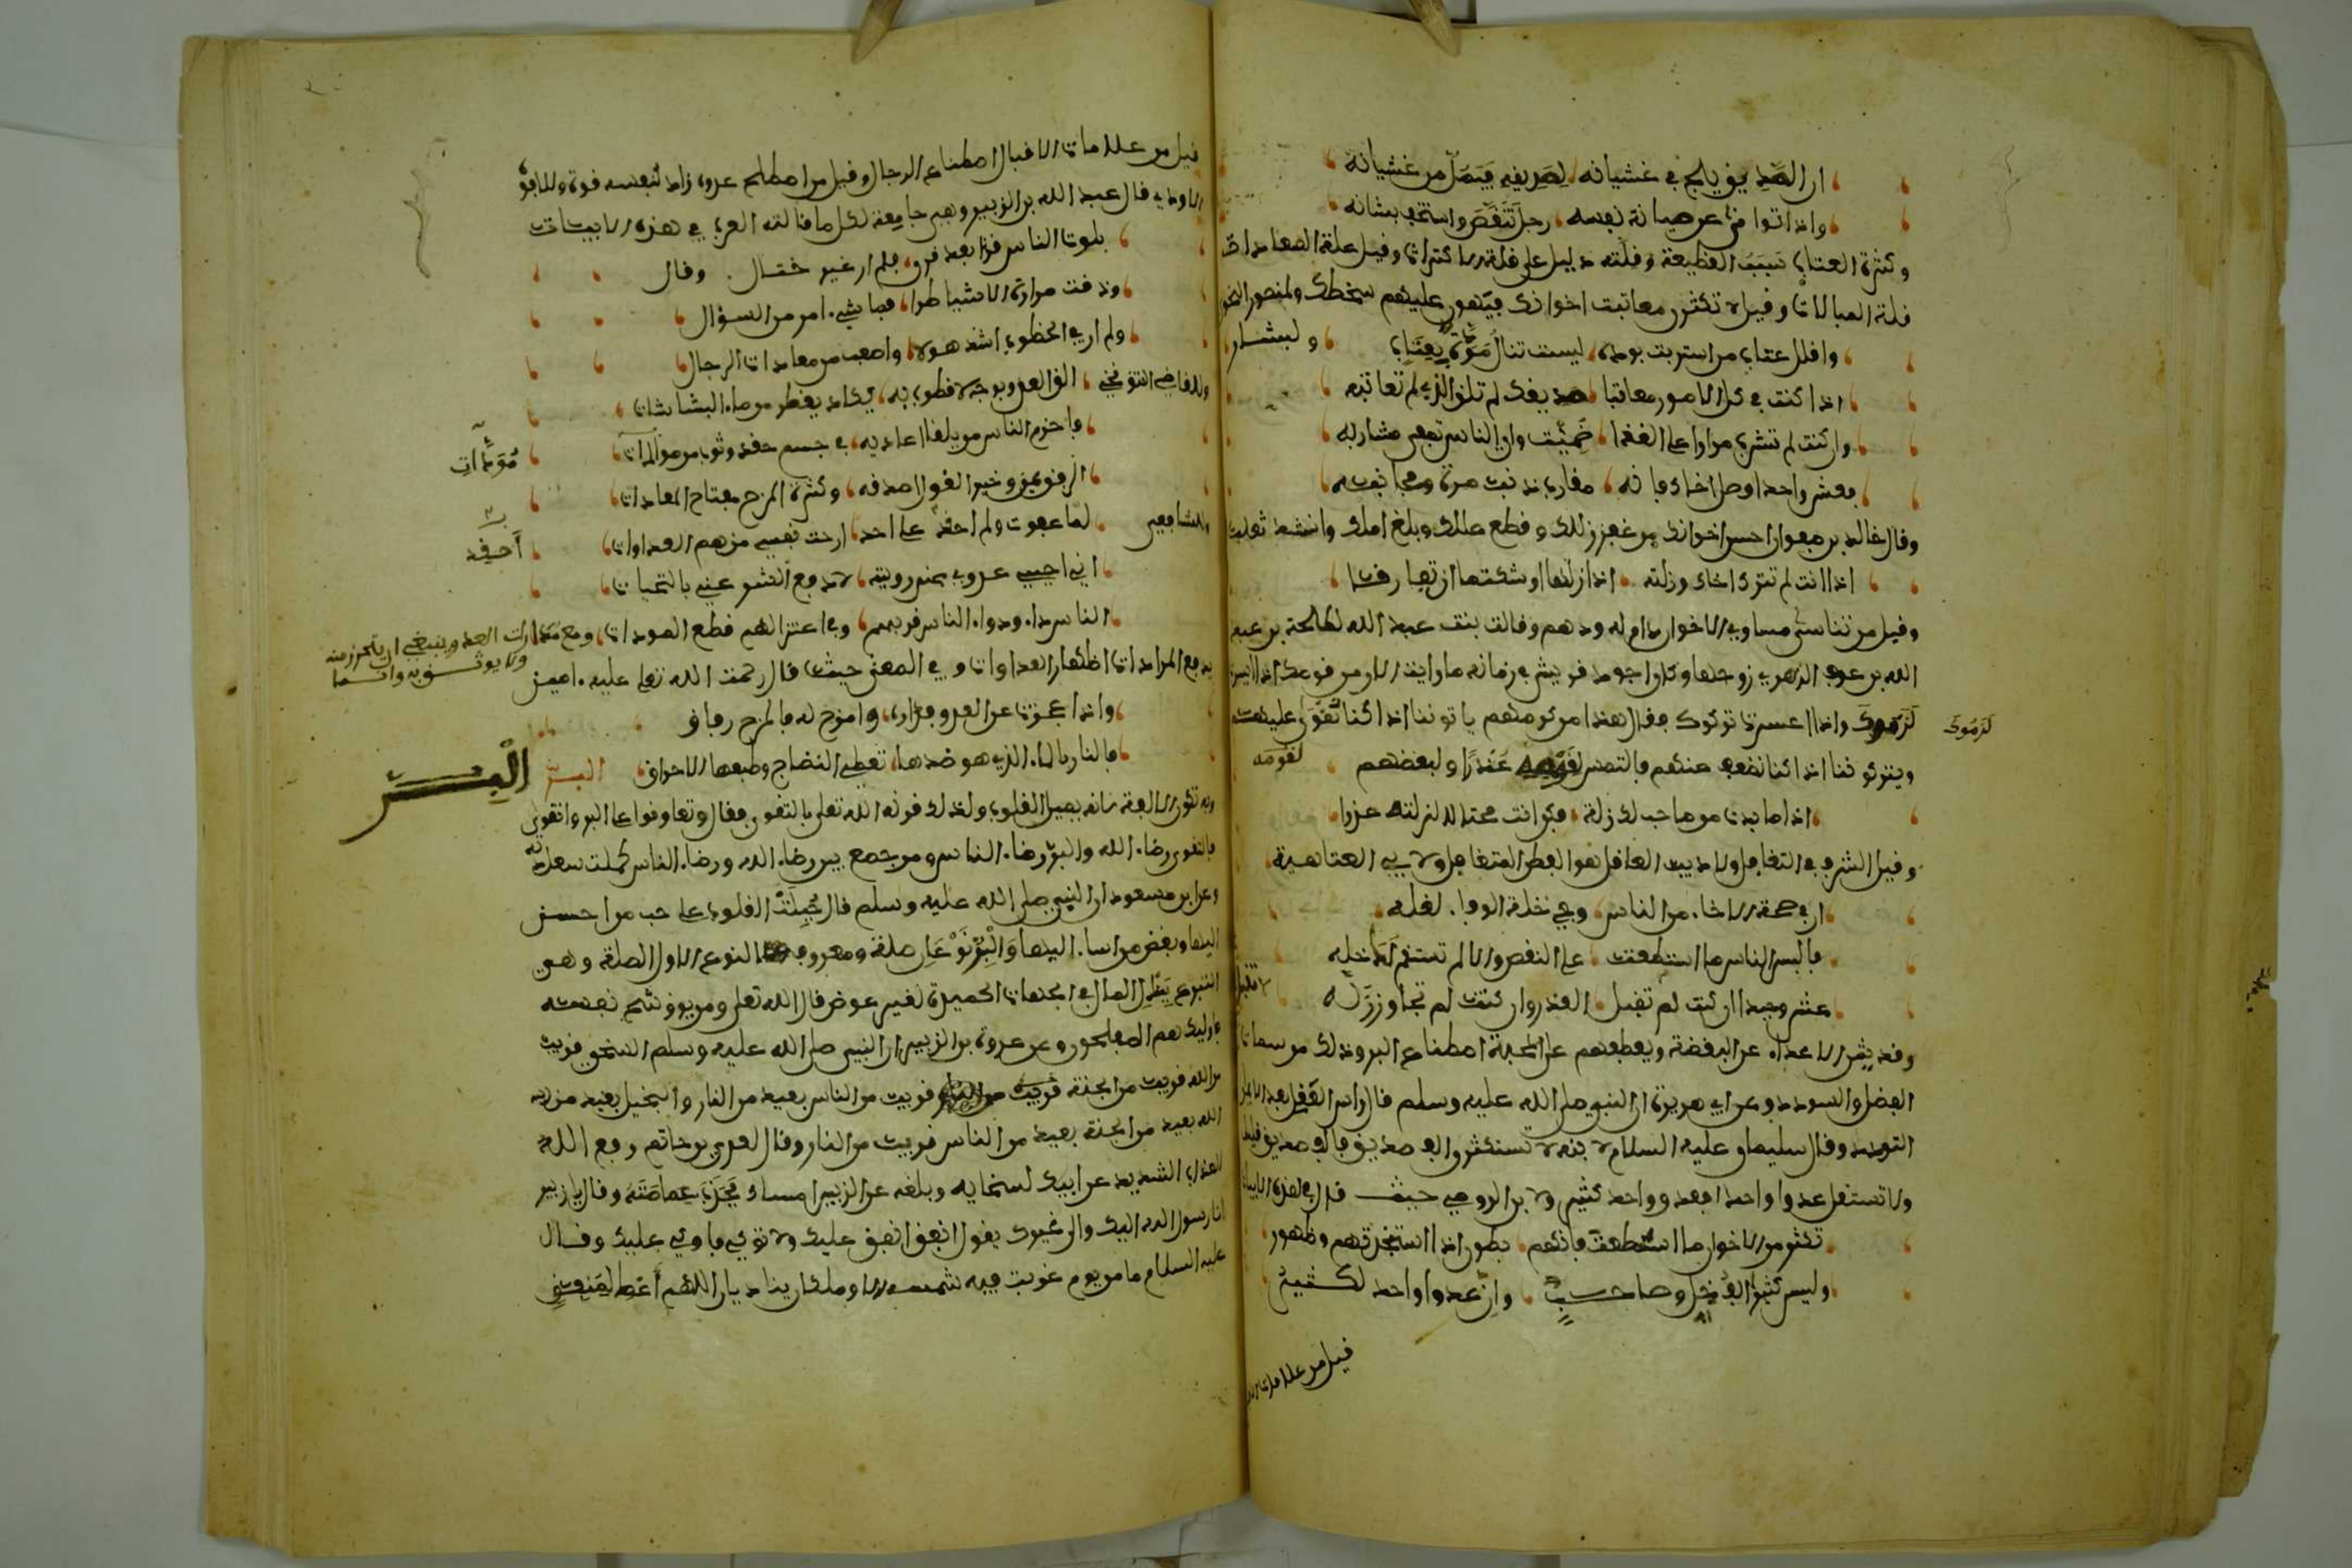 ان الصديق يلج في غشيانه لصديقه فيمل من غشيانه
واذا توانى عن صيانة نفسه رجل تنقص واستخف بشانه
وكثرة العتاب سبب القطيعة وقلته دليل على قلة الاكتراث وقيل علة المعادات
قلة المبالات وقيل لا تكثرن معاتبت اخوانك فيهون عليهم سخطك ولمنصور النمري
واقلل عتاب من استربت بوده ليست تنال مودة بعتاب ولبشار
اذا كنت في كل الامور معاتبا صديقك لم تلق الذي لم تعاتبه
وان كنت لم تشرب مرارا على القذا ضميت واي الناس تصفى مشاربه
فعش واحدا وصل اخاك فانه مقارف ذنب مرة ومجانبه
وقال خالد بن صفوان احسن اخوانك من غفر زللك وقطع عللك وبلغ املك وانشد ثعلب
اذا انت لم تترك اخاك وزلته اذا زلها اوشكتما ان تفارقا
وقيل من تناسى مساوي الاخوان دام له ودهم وقالت بنت عبد الله لطلحة بن عبد
الله بن عوف الزهري زوجها وكان اجود قريش في زمانه ما رايت الام من قومك اذا ايسرت
لزموك واذا اعسرت تركوك فقال هذا من كرمهم ياتوننا اذا كنا نقوى عليهم
لزموك
ويتركوننا اذا كنا نضعف عنهم فالتمس لقومه عذرا ولبعضهم
لقومه
اذا ما بدت من صاحب لك زلة فكن انت محتالا لزلته عذرا
وقيل الشرف في التغافل والاديب العاقل هو الفطن المتغافل ولابي العتاهية
ان في صحة الاخاء من الناس وفي خلة الوفاء لقله
فالبس الناس ما استطعت على النقص والا لم تستقم لك خله
عش وحيدا ان كنت لم تقبل العذر وان كنت لم تجاوز زله
وقد يثني الاعداء عن البغضة ويعطفهم على المحبة اصطناع البر وذلك من سمات
الفضل والسودد وعن ابي هريرة ان النبي صلى الله عليه وسلم قال راس العقل بعد الايمان
التودد وقال سليمان عليه السلام لابنه لا تستكثر ان الف صديق فالف صديق قليل
ولا تستقل عدوا واحدا فعدو واحد كثير ولابن الرومي حيث قال في هذه الابيات
تكثر من الاخوان ما استطعت فانهم بطون اذا استنجدتهم وظهور
وليس كثيرا الف خل وصاحب وان عدوا واحد لكثير
قيل من علامات
قيل من علامات الاقبال اصطناع الرجال وقيل من اصطلح عدوه زاد لنفسه قوة وللافوه
الاودي قال عبد الله بن الزبير وهي جامعة لكل ما قالته العرب في هذه الابيات
بلوت الناس قرنا بعد قرن فلم ار غير ختال وقال
وذقت مرارة الاشياء طرا فما شيء امر من السؤال
ولم ار في الخطوب اشد هولا واصعب من معادات الرجال
وللقاضي التنوخي الق العدو بوجه لا قطوب به يكاد يقطر من ماء البشاشات
فاحزم الناس من يلقى اعاديه في جسم حقد وثوب من مودات
مودات
الرفق يمن وخير القول اصدقه وكثرة المزح مفتاح المعادات
وللشافعي لما عفوت ولم احقد على احد ارحت نفسي من هم العداوات
احقد
اني احيي عدوي عند رويته لادفع الشر عني بالتحيات
الناس داء ودواء الناس قربهم وفي اعتزالهم قطع المودات
ومع مداراة العدو ينبغي ان يتحرز منه
ولا يوثق به وانما
يدفع المرادات اظهار العداوات وفي المعنى حيث قال رحمت الله تعلى عليه امين
واذا عجزت عن العدو فداره وامزح له فالمزح وفاق
فالنار بالماء الذي هو ضدها تعطي النضاج وطبعها الاحراق البر
البر
وبه تكون الالفة لانه يميل القلوب ولذلك قرنه الله تعلى بالتقوى فقال وتعاونوا على البر والتقوى
فالتقوى رضاء الله والبر رضاء الناس ومن جمع بين رضاء الله ورضاء الناس كملت سعادته
وعن ابن مسعود ان النبي صلى الله عليه وسلم قال جبلت القلوب على حب من احسن
اليها وبغض من اساء اليها والبر نوعان صلة ومعروف النوع الاول الصلة وهي
التبرع ببذل المال في الجهات الحميدة لغير عوض قال الله تعلى ومن يوق شح نفسه
فاوليك هم المفلحون وعن عروة بن الزبير ان النبي صلى الله عليه وسلم السخي قريب
من الله قريب من الجنة قريب من الناس بعيد من النار والبخيل بعيد من
الله بعيد من الجنة بعيد من الناس قريب من النار وقال لعدي بن حاتم رفع الله
العذاب الشديد عن ابيك لسخايه وبلغه عن الزبير امساك فجذب عمامته وقال يا زبير
انا رسول الله اليك والى غيرك يقول انفق انفق عليك ولا توكي فاوكي عليك وقال
عليه السلام ما من يوم غربت فيه شمسه الا وملكان يناديان اللهم اعط لمنفق